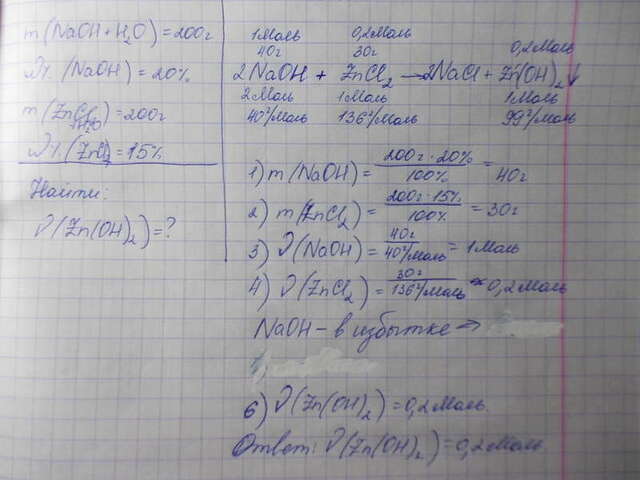 m(NaOH + H₂O) = 200г
W% (NaOH) = 20%
m(ZnCl₂ + H₂O) = 200г
W% (ZnCl₂) = 15%
Найти:
ν(Zn(OH)₂) = ?
1 Моль 0,2 Моль
40г 30г 0,2 Моль
2NaOH + ZnCl₂ → 2NaCl + Zn(OH)₂↓
2 Моль 1 Моль 1 Моль
40г/Моль 136г/Моль 99г/Моль
1) m(NaOH) = 200г · 20% / 100% = 40г
2) m(ZnCl₂) = 200г · 15% / 100% = 30г
3) ν(NaOH) = 40г / 40г/Моль = 1 Моль
4) ν(ZnCl₂) = 30г / 136г/Моль ≈ 0,2 Моль
NaOH – в избытке →
6) ν(Zn(OH)₂) = 0,2 Моль.
Ответ: ν(Zn(OH)₂) = 0,2 Моль